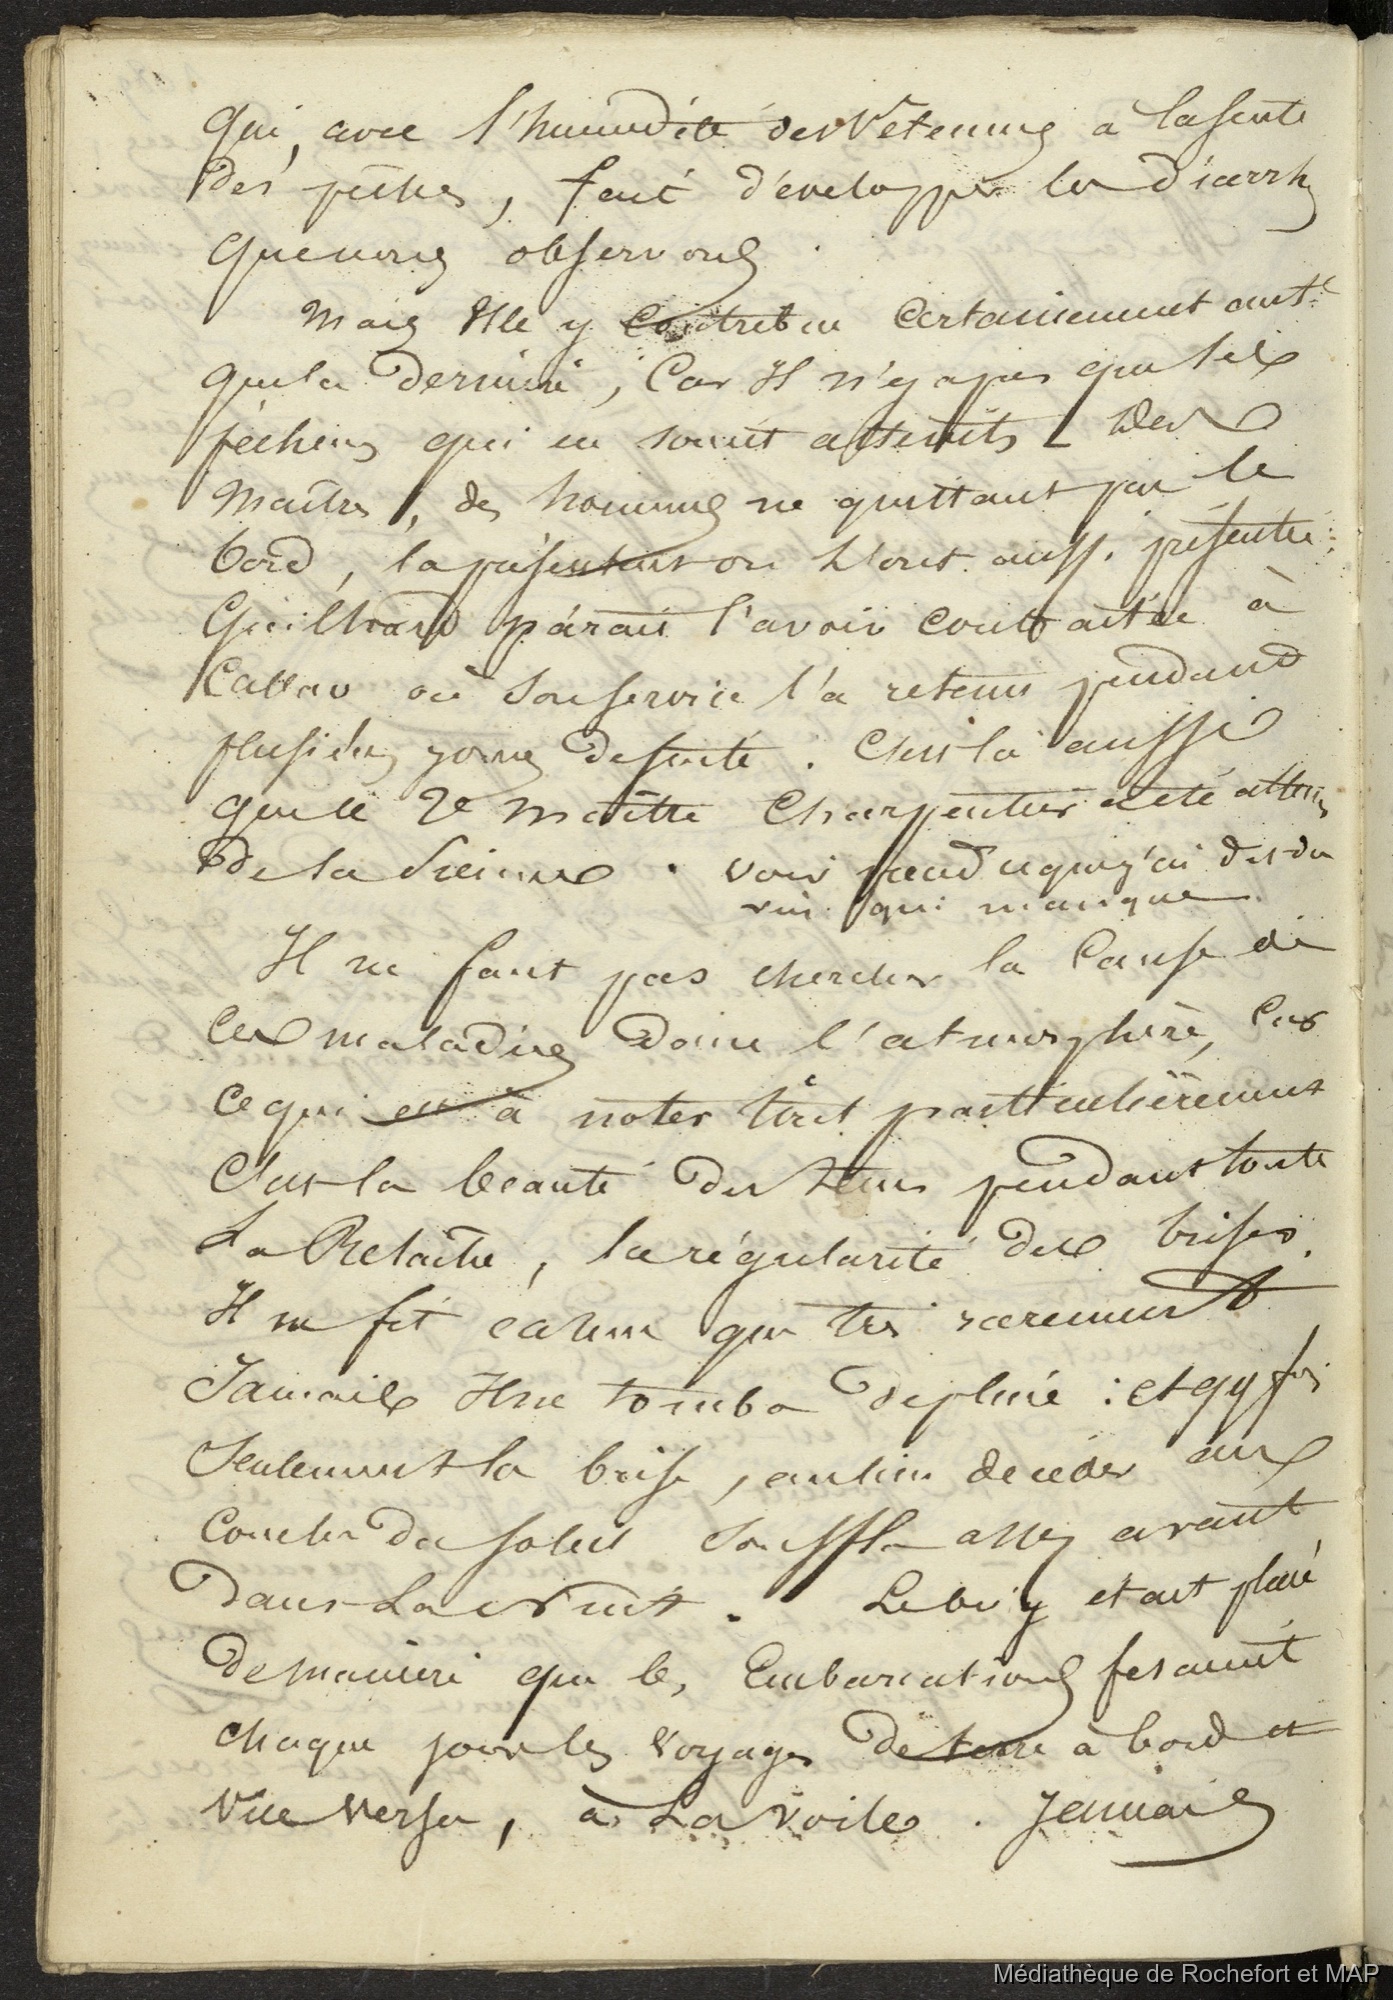 qui, avec l'humidité des Vêtemens à la suite
des pêches, fait développer la diarrhée
que nous observons.
Mais Elle y contribue certainement autt
que la dernière, Car Il n'y a pas que les
pêcheurs qui en soient atteints. Des
maîtres, des hommes ne quittant pas le
bord, la présentent ou l'ont aussi présentée :
Guilhard paraît l'avoir contractée à
Callao où son service l'a retenu pendant
plusieurs jours de suite. C'est là aussi
que le 2e maître Charpentier a été atteint
de la sienne. voir quand ce que j'ai dit du
vin qui manque
Il ne faut pas chercher la Cause de
ces maladies dans l'atmosphère, Car
ce qui est à noter tout particulièrement
C'est la beauté du tems pendant toute
La Relâche, la régularité des brises.
Il ne fit calme que très rarement
Jamais Il ne tomba de pluie : et qq fois
Seulement la brise, au lieu de céder au
Coucher du soleil souffla assez avant
dans La Nuit. Le bri g était placé
de manière que les Embarcations fesaient
chaque jour les voyages de terre à bord et
vice versa, à La voile. Jamais